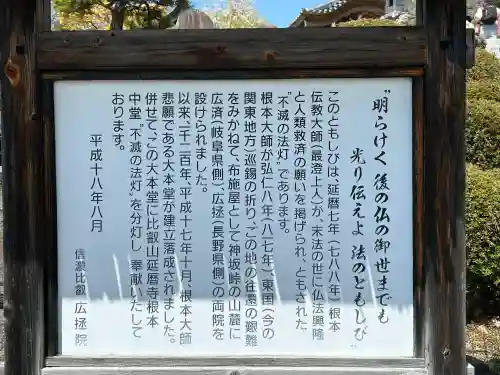 "明らけく 後の仏の御世までも
光り伝えよ 法のともしび"
このともしびは、延暦七年(七八八年)根本
伝教大師(最澄上人)が、末法の世に仏法興隆
と人類救済の願いを掲げられ、ともされた
"不滅の法灯"であります。
根本大師が弘仁八年(八一七年)、東国(今の
関東地方)巡錫の折り、この地の往還の艱難
をみかねて、布施屋として神坂峠の山麓に
広済(岐阜県側)、広拯(長野県側)の両院を
設けられました。
以来、千二百年、平成十七年十月、根本大師
悲願である大本堂が建立落成されました。
併せて、この大本堂に比叡山延暦寺根本
中堂"不滅の法灯"を分灯し 奉献いたして
おります。
平成十八年八月
信濃比叡 広拯院